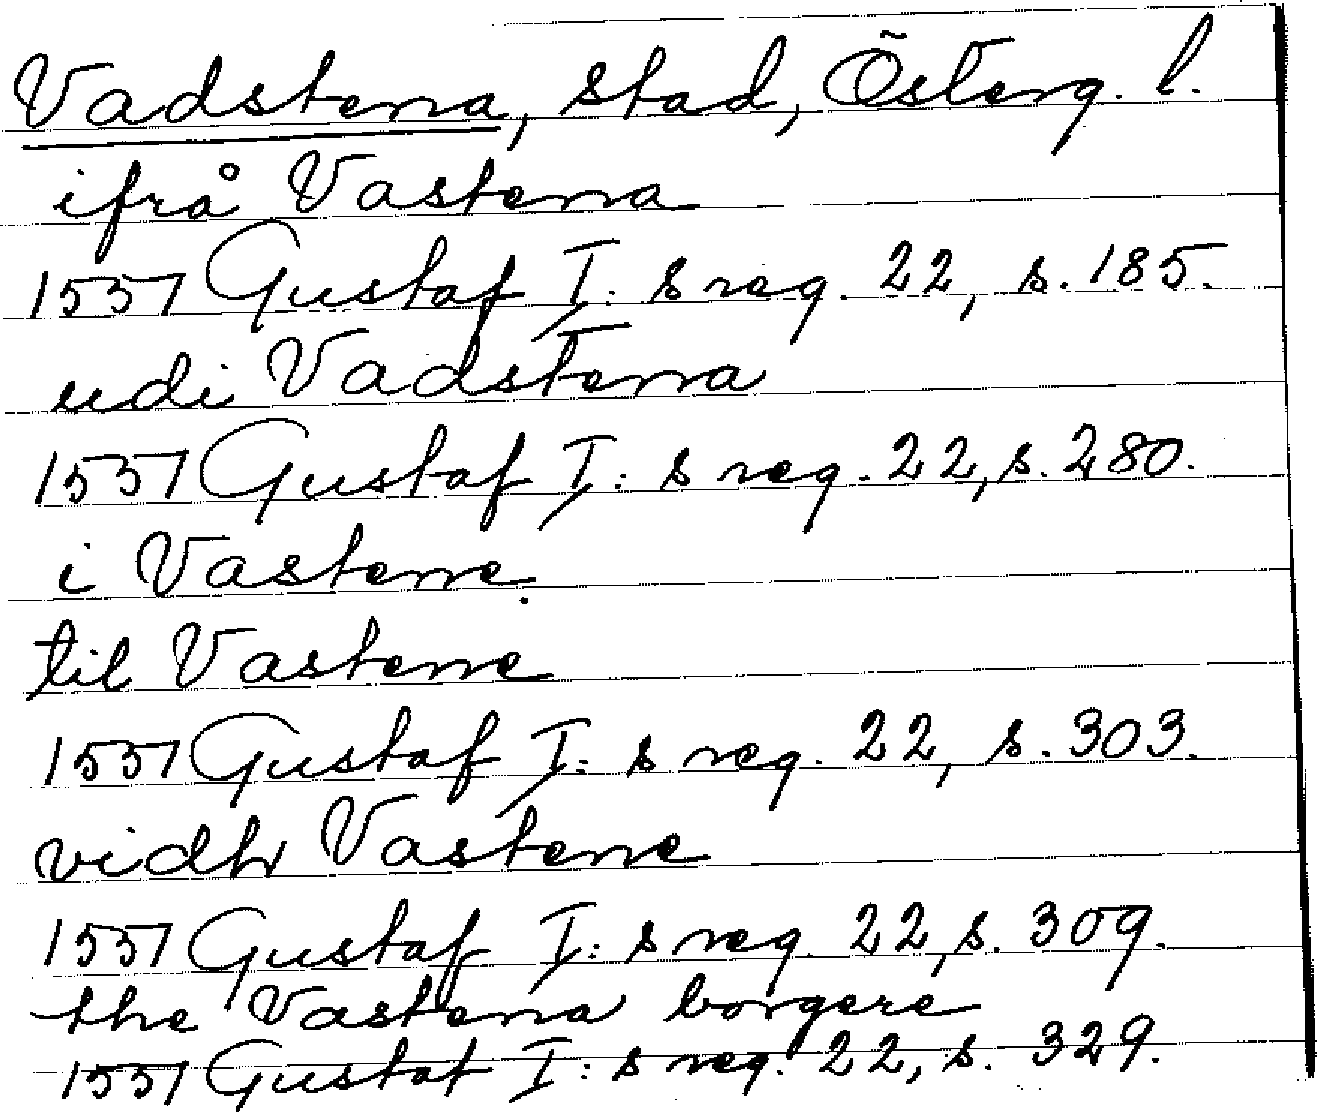 Vadstena, stad, Österg. l.
ifrå Vastena
1551 Gustaf I:s reg. 22, s. 185.
udi Vadstena
1551 Gustaf I:s reg. 22, s. 280.
i Vastene
til Vastene
1551 Gustaf I:s reg. 22, s. 303.
vidh Vastene
1551 Gustaf I:s reg. 22, s. 309.
the Vastena borgere
1551 Gustaf I:s reg. 22, s. 329.